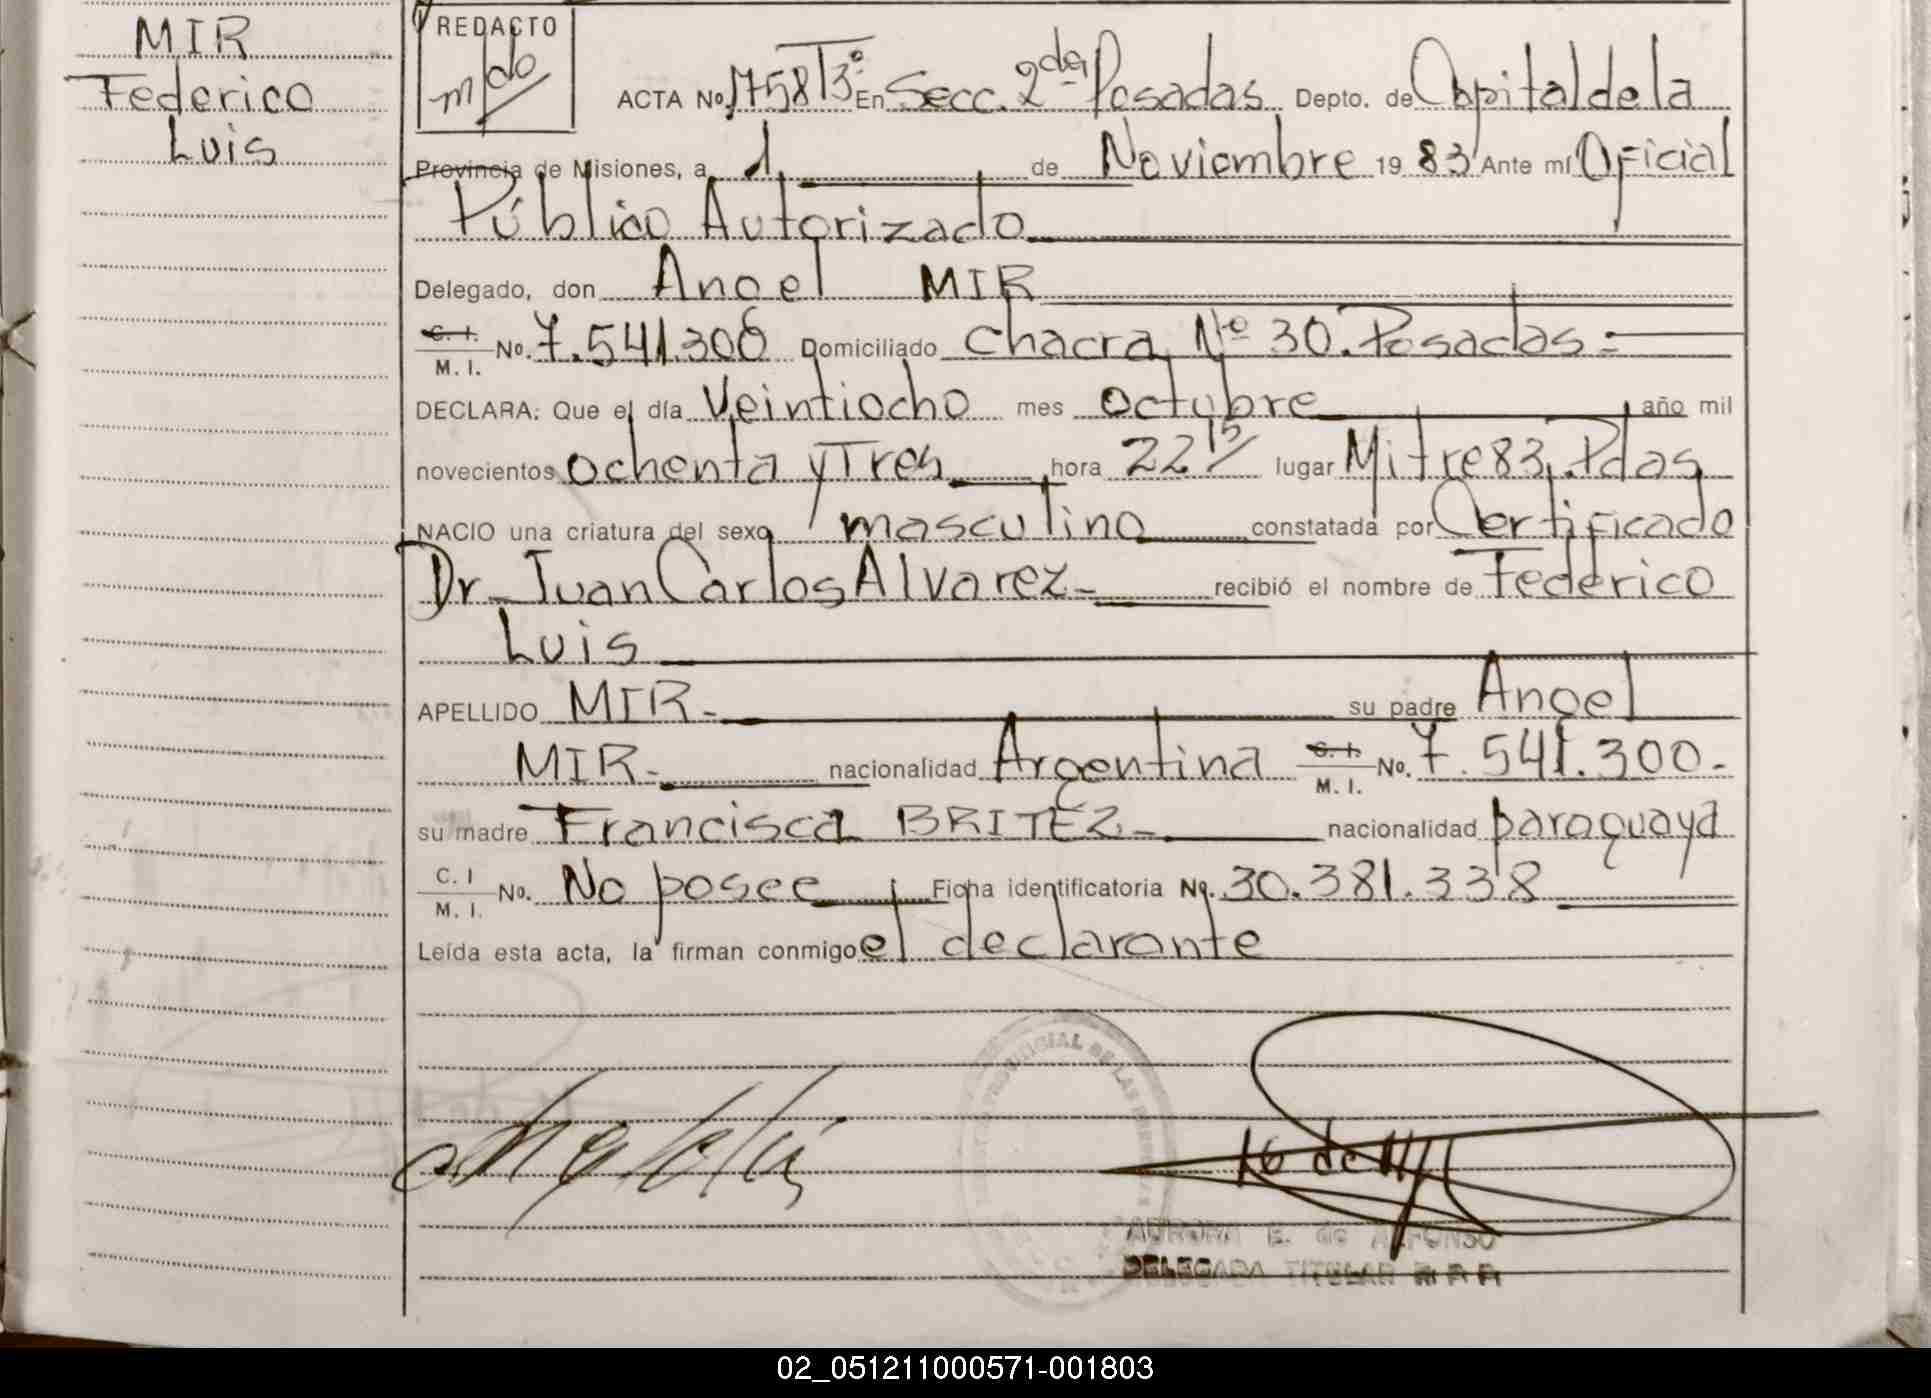 MIR
Federico
Luis
REDACTO
ACTA No. 1758 Tº 3º En Secc. 2da Posadas Depto. de Capital de la
Provincia de Misiones, a 1 de Noviembre 19 83 Ante mí Oficial
Público Autorizado
Delegado, don Angel MIR
C. I. / M. I. No. 7.541.300 Domiciliado Chacra Nº 30. Posadas=
DECLARA: Que el día Veintiocho mes octubre año mil
novecientos ochenta y Tres hora 22 15 lugar Mitre 83. Pdas
NACIO una criatura del sexo masculino constatada por Certificado
Dr. Juan Carlos Alvarez- recibió el nombre de Federico
Luis
APELLIDO MIR- su padre Angel
MIR- nacionalidad Argentina C. I. / M. I. No. 7.541.300.-
su madre Francisca BRITEZ- nacionalidad paraguaya
C. I / M. I. No. No posee Ficha identificatoria No. 30.381.338
Leída esta acta, la firman conmigo el declarante
AURORA E. de ALFONSO
DELEGADA TITULAR R P P
02_051211000571-001803